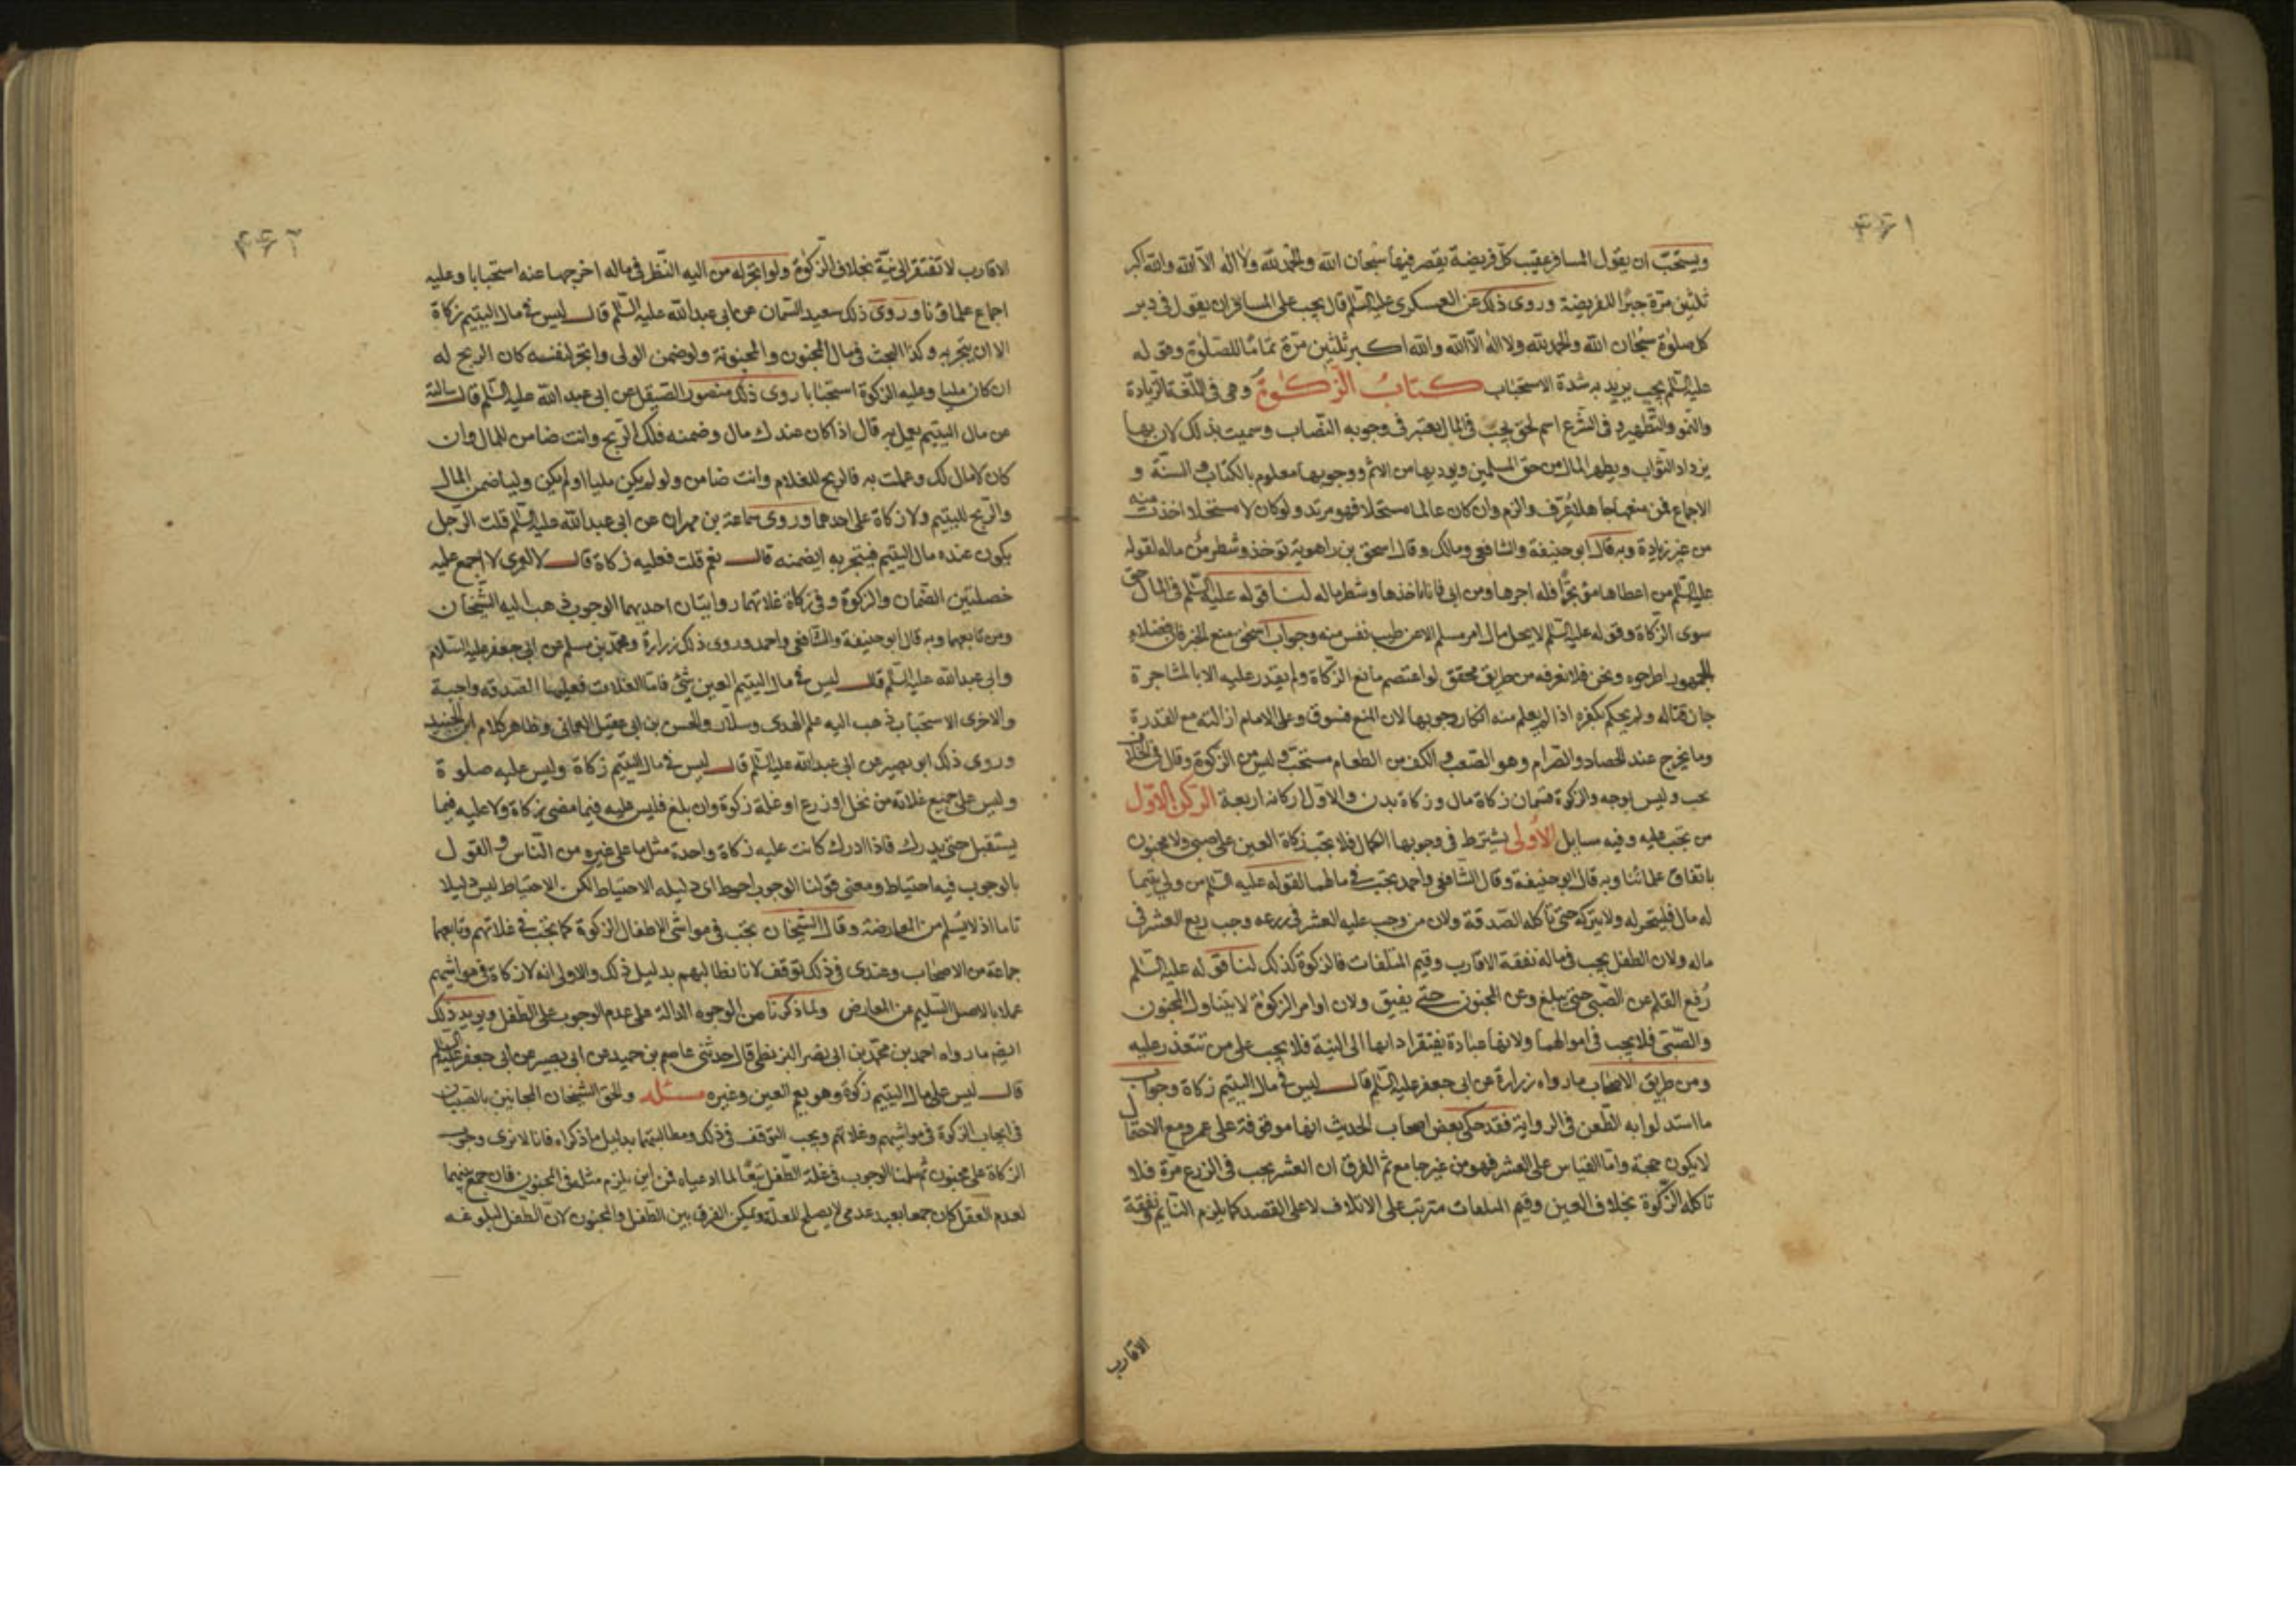 ٤٦١
ويستحبّ ان يقول المسافر عقيب كلّ فريضة يقصر فيها سُبحان الله والحمد لله ولا اله الّا الله والله اكبر
ثلثين مرّة جبرًا للفريضة وروى ذلك عن العسكرى عليه السّلم قال يجب على المسافر ان يقول فى دبر
كل صلوة سُبحان الله والحمد لله ولا اله الّا الله والله اكبر ثلثين مرّة تمامًا للصّلوة وقوله
عليه السّلم يجب يريد به شدة الاستحباب كتابُ الزّكوة وهى فى اللّغة الزّيادة
والنّمو والتّطهير و فى الشّرع اسم لحق يجب فى المال يعتبر فى وجوبه النّصاب وسميت بذلك لان بها
يزداد الثّواب ويطهر المال من حق المسلمين ويوديها من الاثم ووجوبها معلوم بالكتاب والسنّة و
الاجماع فمن منعها جاهلا عُرّف والزم وان كان عالما مستحلا فهو مرتد ولو كان لا مستحلا اخذت منه
من غير زيادة وبه قال ابو حنيفة والشافعى ومالك وقال اسحق بن راهوية توخذ وشطر من ماله لقوله
عليه السّلم من اعطاها مؤتجرًا فله اجرها ومن ابى فانا اخذها وشطر ماله لنا قوله عليه السّلم فى المال حق
سوى الزّكاة وقوله عليه السّلم لا يحل مال امر مسلم الا عن طيب نفس منه وجواب اسحق بمنع الخبر فان فضلاء
الجمهور اطرحوه ونحن فلا نعرفه من طريق محقق لو اعتصم مانع الزّكاة ولم يقدر عليه الا بالمشاجرة
جاز قتاله ولم يحكم بكفره اذا لم يعلم منه انكار وجوبها لان المنع فسوق وعلى الامام ازالته مع القدرة
وما يخرج عند الحصاد والصّرام وهو الضّغث والكف من الطعام مستحبّ وليس من الزكوة وقال فى الخلاف
يجب وليس بوجه والزكوة قسمان زكاة مال وزكاة بدن والاوّل اركانه اربعة الركن الاوّل
من تجب عليه وفيه مسايل الاولى يشترط فى وجوبها الكمال فلا تجب زكاة العين على صبى ولا مجنون
باتفاق علمائنا وبه قال ابو حنيفة وقال الشّافعى واحمد يجب فى مالهما لقوله عليه السّلم من ولى يتيما
له مال فليتجر له ولا يتركه حتّى تأكله الصّدقة ولان من وجب عليه العشر فى زرعه وجب ربع العشر فى
ماله ولان الطفل يجب فى ماله نفقة الاقارب وقيم المتلفات فالزكوة كذلك لنا قوله عليه السّلم
رُفع القلم عن الصّبى حتى يبلغ وعن المجنون حتّى يفيق ولان اوامر الزكوة لا يتناول المجنون
والصّبى فلا يجب فى اموالهما ولانها عبادة يفتقر اداها الى النية فلا يجب على من تتعذر عليه
ومن طريق الاصحاب ما رواه زرارة عن ابى جعفر عليه السّلم قال ليس فى مال اليتيم زكاة وجواب
ما استدلوا به الطّعن فى الرواية فقد حكى بعض اصحاب الحديث انها موقوفة على عمر ومع الاحتمال
لا يكون حجة وامّا القياس على العشر فهو من غير جامع ثم الفرق ان العشر يجب فى الزرع مرّة فلا
تاكله الزّكوة بخلاف العين وقيم المتلفات مترتب على الاتلاف لا على القصد كما يلزم النّايم نفقة
الاقارب
٤٦٢
الاقارب لا تفتقر الى نيّة بخلاف الزّكوة ولو اتجر له من اليه النّظر فى ماله اخرجها عنه استحبابا وعليه
اجماع علمائنا وروى ذلك سعيد السّمان عن ابى عبد الله عليه السّلم قال ليس فى مال اليتيم زكاة
الا ان يتجر به وكذا البحث فى مال المجنون والمجنونة ولو ضمن الولى واتجر لنفسه كان الربح له
ان كان مليا وعليه الزكوة استحبابا روى ذلك منصور الصّيقل عن ابى عبد الله عليه السّلم قال سالته
عن مال اليتيم يعمل به قال اذا كان عندك مال وضمنه فلك الرّبح وانت ضامن للمال وان
كان لا مال لك وعملت به فالربح للغلام وانت ضامن ولو لم يكن مليا او لم يكن وليا ضمن المال
والرّبح لليتيم ولا زكاة على احدهما وروى سماعة بن مهران عن ابى عبد الله عليه السّلم قلت الرّجل
يكون عنده مال اليتيم فيتجر به ايضمنه قال نعم قلت فعليه زكاة قال لا لعمرى لا اجمع عليه
خصلتين الضّمان والزّكوة وفى زكاة غلاتهما روايتان احديهما الوجوب ذهب اليه الشّيخان
ومن تابعهما وبه قال ابو حنيفة والشّافعى واحمد وروى ذلك زرارة ومحمّد بن مسلم عن ابى جعفر عليه السّلام
وابى عبد الله عليه السّلم قال ليس فى مال اليتيم العين شئ فامّا الغلات فعليها الصّدقة واجبة
والاخرى الاستحباب ذهب اليه علم الهدى وسلّار والحسن بن ابى عقيل العمانى وظاهر كلام ابن الجنيد
وروى ذلك ابو بصير عن ابى عبد الله عليه السّلم قال ليس فى مال اليتيم زكاة وليس عليه صلوة
وليس على جميع غلاته من نخل او زرع او غلة زكوة وان بلغ فليس عليه فيما مضى زكاة ولا عليه فيما
يستقبل حتى يدرك فاذا ادرك كانت عليه زكاة واحدة مثل ما على غيره من النّاس والقول
بالوجوب فيه احتياط ومعنى قولنا الوجوب احوط اى دليله الاحتياط لكن الاحتياط ليس دليلا
تاما اذ لا يسلم من المعارضة وقال الشّيخان تجب فى مواشى الاطفال الزكوة كما تجب فى غلاتهم وتابعهما
جماعة من الاصحاب وعندى فى ذلك توقف لانا نطالبهم بدليل ذلك والاولى انه لا زكاة فى مواشيهم
عملا بالاصل السّليم عن المعارض ولما ذكرنا من الوجوه الدالة على عدم الوجوب على الطّفل ويويد ذلك
ايضم ما رواه احمد بن محمّد بن ابى نصر البزنطى قال حدثنى عاصم بن حميد عن ابى بصير عن ابى جعفر عليه السّلم
قال ليس على مال اليتيم زكوة وهو يعم العين وغيره مسئلة والحق الشّيخان المجانين بالصّبيان
فى ايجاب الزكوة فى مواشيهم وغلاتهم ويجب التوقف فى ذلك ومطالبتهما بدليل ما ذكراه فانا لا نرى وجوب
الزكاة على مجنون ثم سلمنا الوجوب فى غلة الطّفل تبعًا لما ادعياه فمن اين يلزم مثله فى المجنون فان جمع بينهما
لعدم العقل كان جمعا بعيد عدمى لا يصلح للعلّة ويمكن الفرق بين الطّفل والمجنون لان الطّفل لبلوغه